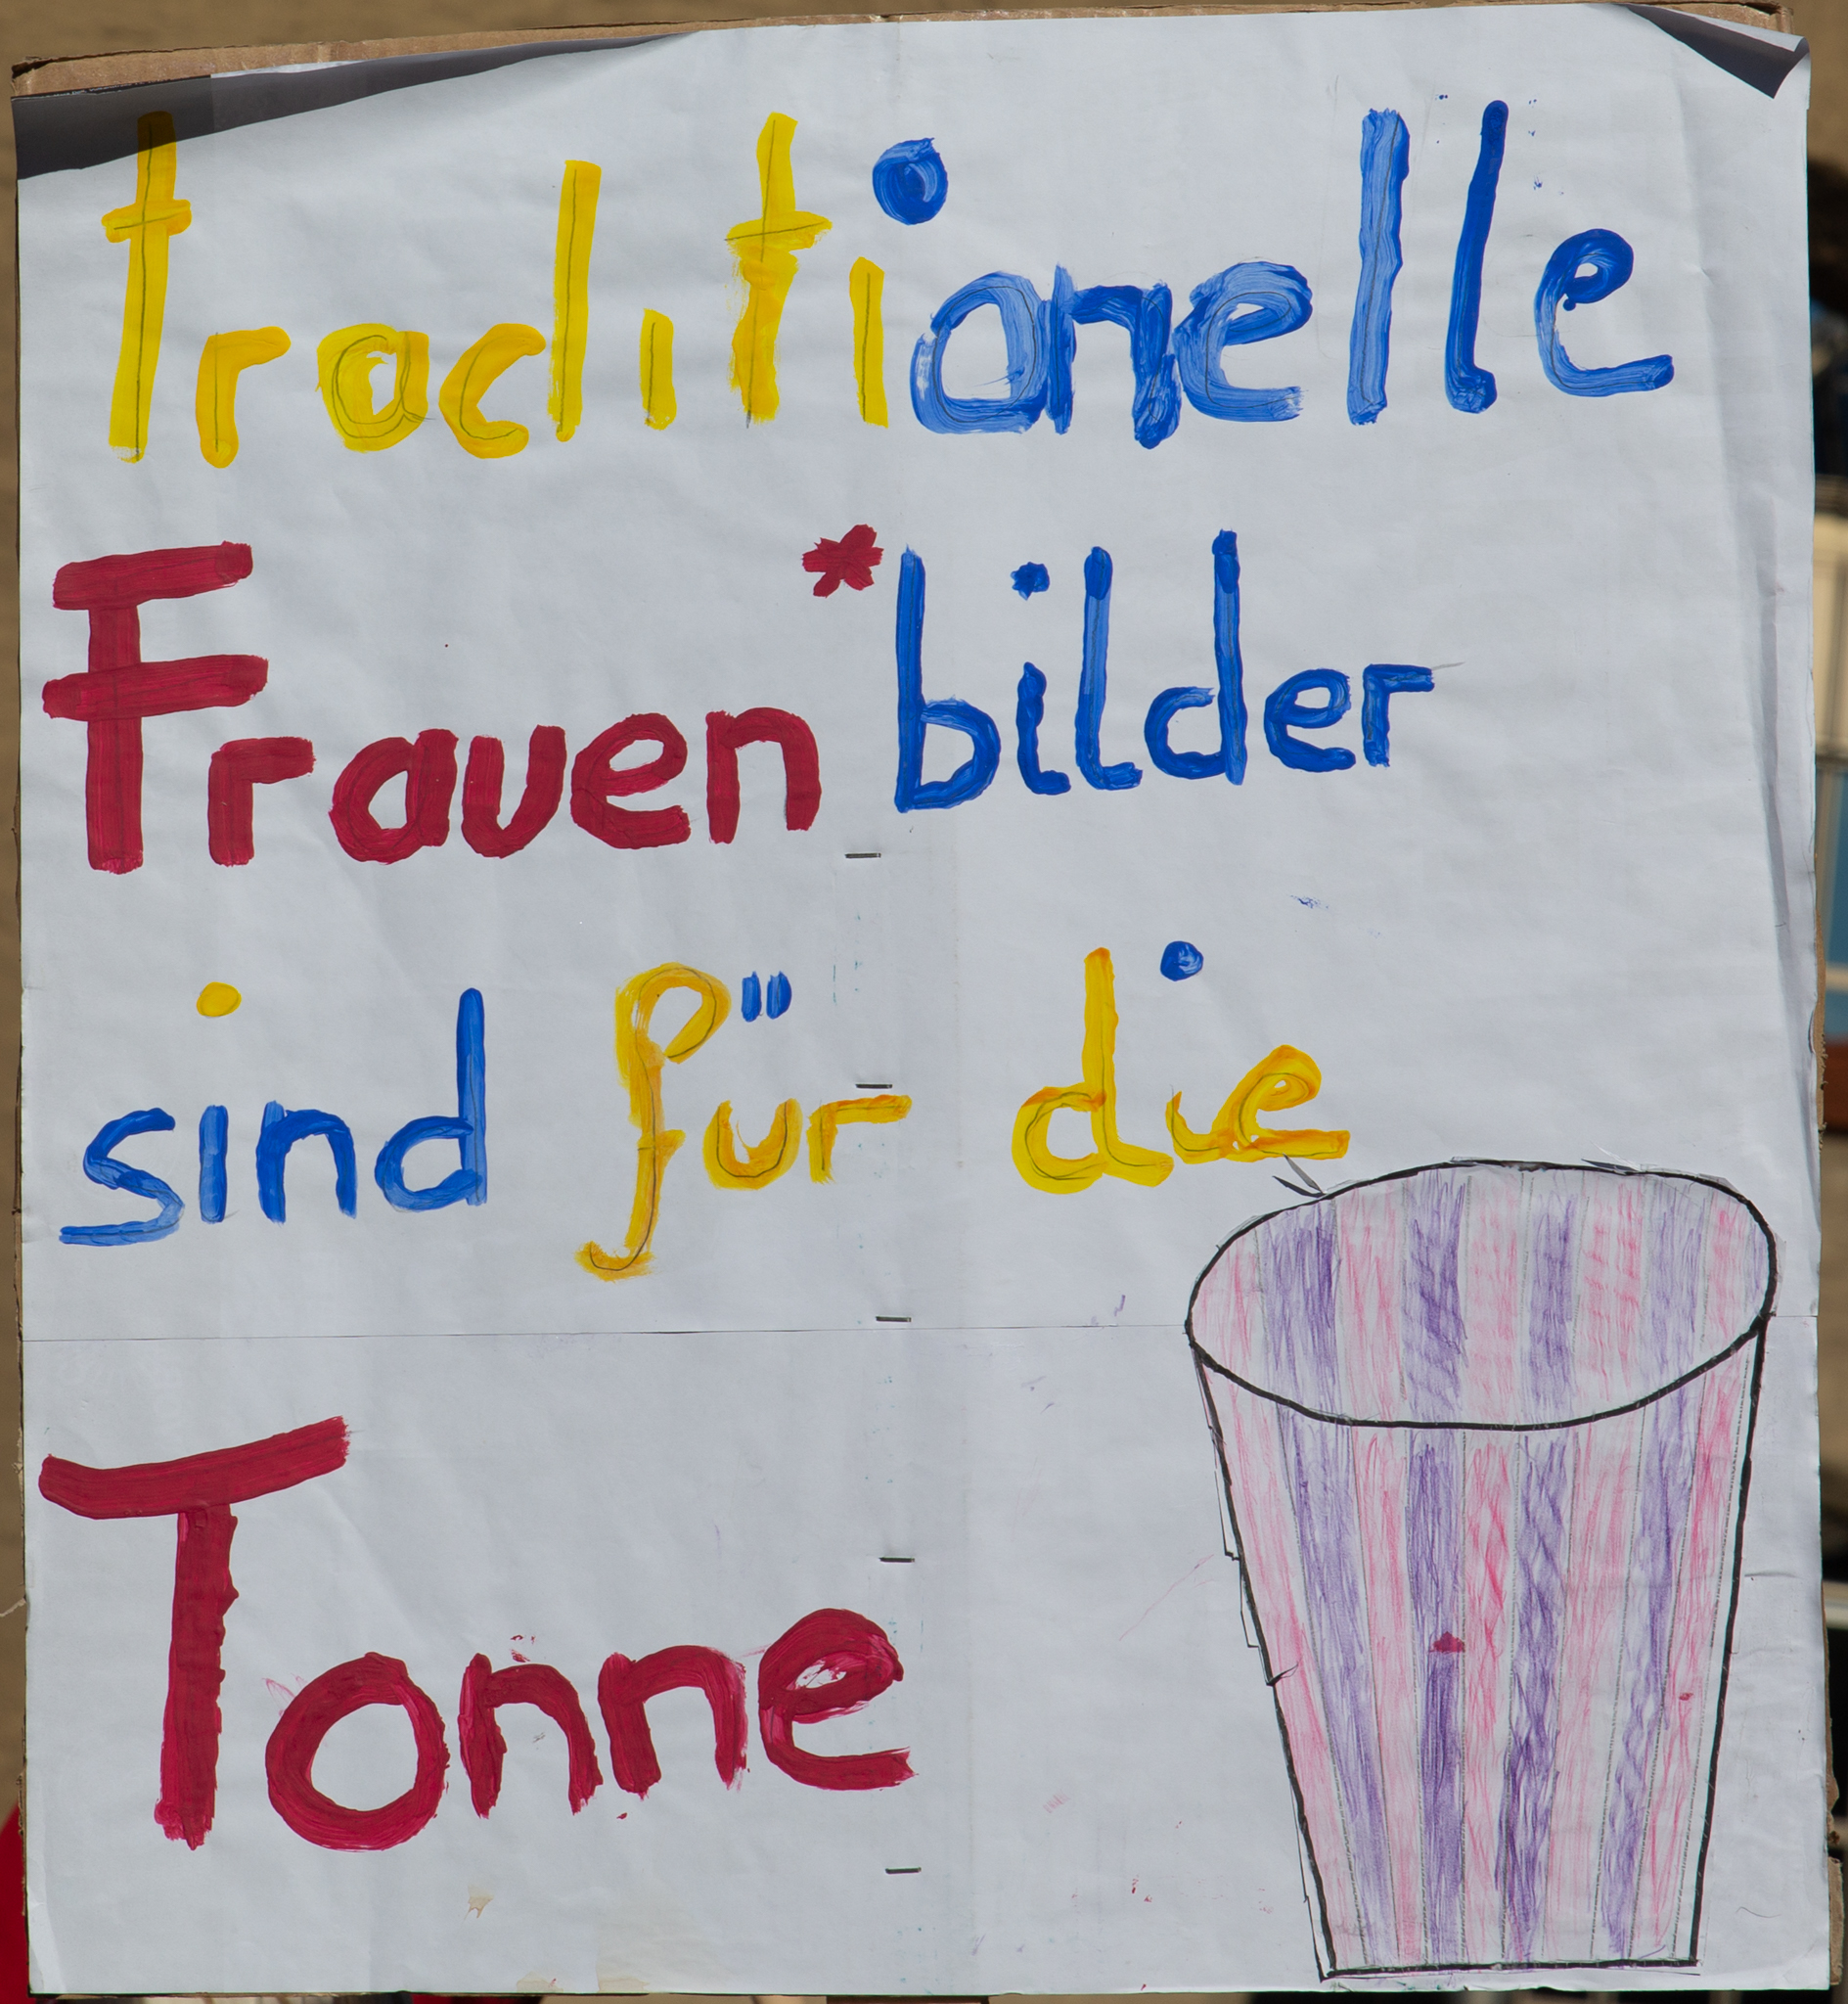 traditionelle
Frauen*bilder
sind für die
Tonne